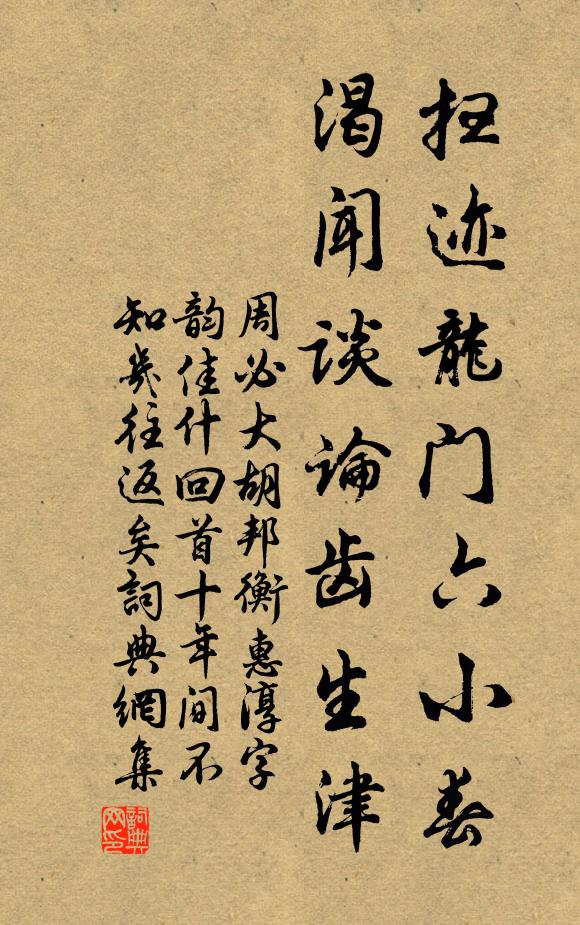 扫迹龍门六小春
渴闻谈論齿生津
周必大胡邦衡惠淳字
韵佳什回首十年间不
知几往返矣詞典網集
詞典网印